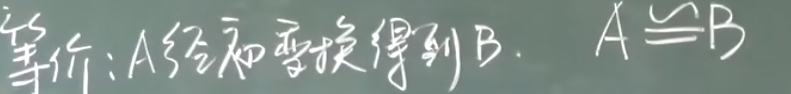 等价:A经初变换得到B. A≌B